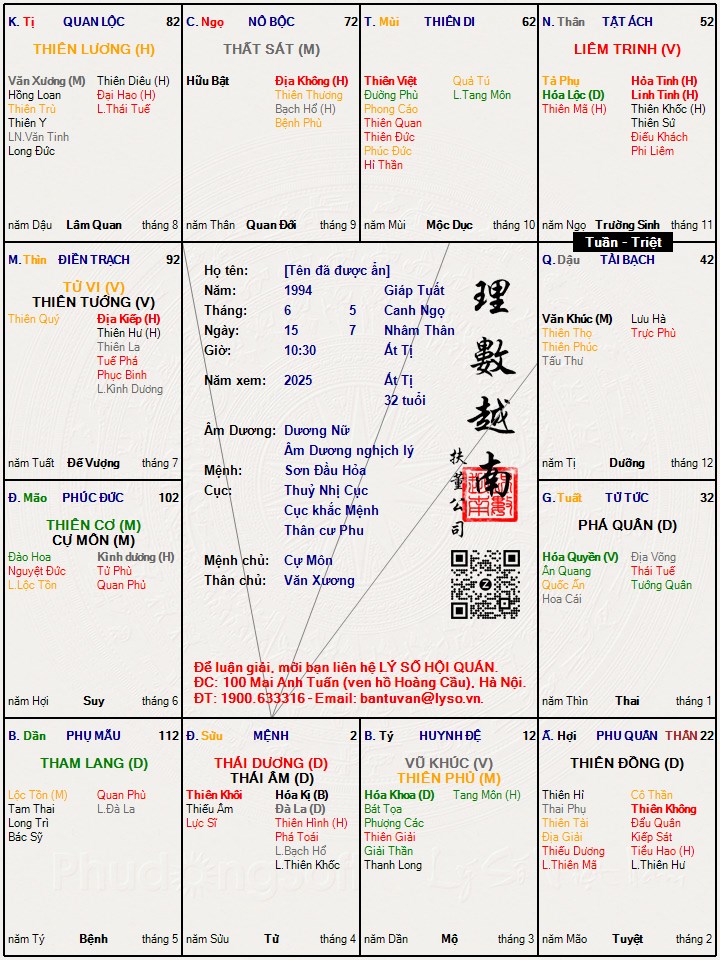 K. Tị QUAN LỘC 82
THIÊN LƯƠNG (H)
Văn Xương (M) Thiên Diêu (H)
Hồng Loan Đại Hao (H)
Thiên Trù L.Thái Tuế
Thiên Y
LN.Văn Tinh
Long Đức
năm Dậu Lâm Quan tháng 8
C. Ngọ NÔ BỘC 72
THẤT SÁT (M)
Hữu Bật Địa Không (H)
Thiên Thương
Bạch Hổ (H)
Bệnh Phù
năm Thân Quan Đới tháng 9
T. Mùi THIÊN DI 62
Thiên Việt Quả Tú
Đường Phù L.Tang Môn
Phong Cáo
Thiên Quan
Thiên Đức
Phúc Đức
Hỉ Thần
năm Mùi Mộc Dục tháng 10
N. Thân TẬT ÁCH 52
LIÊM TRINH (V)
Tả Phụ Hỏa Tinh (H)
Hóa Lộc (D) Linh Tinh (H)
Thiên Mã (H) Thiên Khốc (H)
Thiên Sứ
Điếu Khách
Phi Liêm
năm Ngọ Trường Sinh tháng 11
Tuần - Triệt
M. Thìn ĐIỀN TRẠCH 92
TỬ VI (V)
THIÊN TƯỚNG (V)
Thiên Quý Địa Kiếp (H)
Thiên Hư (H)
Thiên La
Tuế Phá
Phục Binh
L.Kình Dương
năm Tuất Đế Vượng tháng 7
Họ tên: [Tên đã được ẩn]
Năm: 1994 Giáp Tuất
Tháng: 6 5 Canh Ngọ
Ngày: 15 7 Nhâm Thân
Giờ: 10:30 Ất Tị
Năm xem: 2025 Ất Tị
32 tuổi
Âm Dương: Dương Nữ
Âm Dương nghịch lý
Mệnh: Sơn Đầu Hỏa
Cục: Thuỷ Nhị Cục
Cục khắc Mệnh
Thân cư Phu
Mệnh chủ: Cự Môn
Thân chủ: Văn Xương
理數越南
扶董公司
Z
Để luận giải, mời bạn liên hệ LÝ SỐ HỘI QUÁN.
ĐC: 100 Mai Anh Tuấn (ven hồ Hoàng Cầu), Hà Nội.
ĐT: 1900.633316 - Email: bantuvan@lyso.vn.
Q. Dậu TÀI BẠCH 42
Văn Khúc (M) Lưu Hà
Thiên Thọ Trực Phù
Thiên Phúc
Tấu Thư
năm Tị Dưỡng tháng 12
Đ. Mão PHÚC ĐỨC 102
THIÊN CƠ (M)
CỰ MÔN (M)
Đào Hoa Kình dương (H)
Nguyệt Đức Tử Phù
L.Lộc Tồn Quan Phủ
năm Hợi Suy tháng 6
G. Tuất TỬ TỨC 32
PHÁ QUÂN (D)
Hóa Quyền (V) Địa Võng
Ân Quang Thái Tuế
Quốc Ấn Tướng Quân
Hoa Cái
năm Thìn Thai tháng 1
B. Dần PHỤ MẪU 112
THAM LANG (D)
Lộc Tồn (M) Quan Phù
Tam Thai L.Đà La
Long Trì
Bác Sỹ
năm Tý Bệnh tháng 5
Đ. Sửu MỆNH 2
THÁI DƯƠNG (D)
THÁI ÂM (D)
Thiên Khôi Hóa Kị (B)
Thiếu Âm Đà La (D)
Lực Sĩ Thiên Hình (H)
Phá Toái
L.Bạch Hổ
L.Thiên Khốc
năm Sửu Tử tháng 4
B. Tý HUYNH ĐỆ 12
VŨ KHÚC (V)
THIÊN PHỦ (M)
Hóa Khoa (D) Tang Môn (H)
Bát Tọa
Phượng Các
Thiên Giải
Giải Thần
Thanh Long
năm Dần Mộ tháng 3
Ấ. Hợi PHU QUÂN THÂN 22
THIÊN ĐỒNG (D)
Thiên Hỉ Cô Thần
Thai Phụ Thiên Không
Thiên Tài Đẩu Quân
Địa Giải Kiếp Sát
Thiếu Dương Tiểu Hao (H)
L.Thiên Mã L.Thiên Hư
năm Mão Tuyệt tháng 2